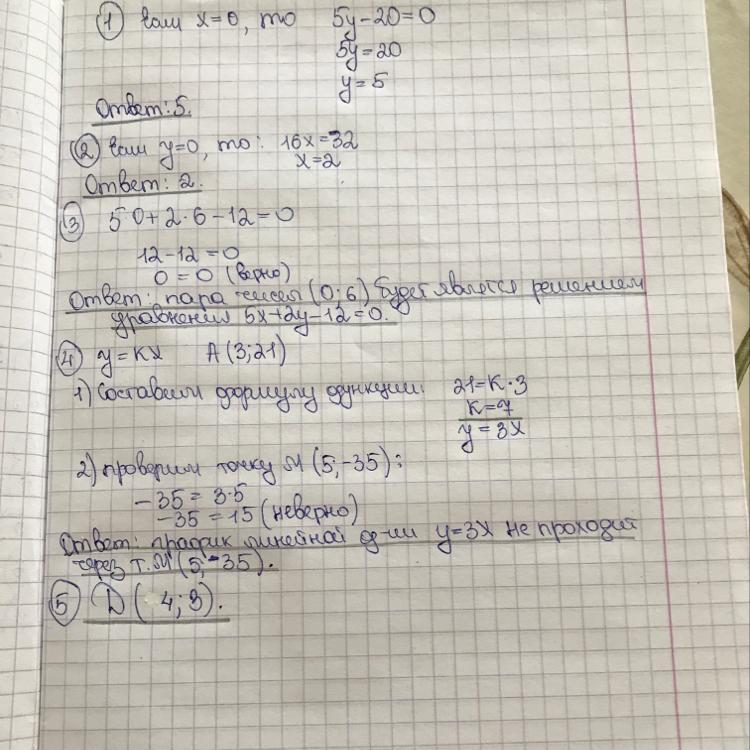 ① если x=0, то 5y-20=0
5y=20
y=5
Ответ: 5.
② если y=0, то: 16x=32
x=2
Ответ: 2.
③ 5 0+2·6-12=0
12-12=0
0=0 (верно)
Ответ: пара чисел (0;6) будет являтся решением
уравнения 5x+2y-12=0.
④ y=kx A(3;21)
1) Составим формулу функции: 21=k·3
k=7
y=3x
2) проверим точку M(5;-35):
-35=3·5
-35=15 (неверно)
Ответ: график линейной ф-ии y=3x не проходит
через т. M(5;-35).
⑤ D( 4;3).